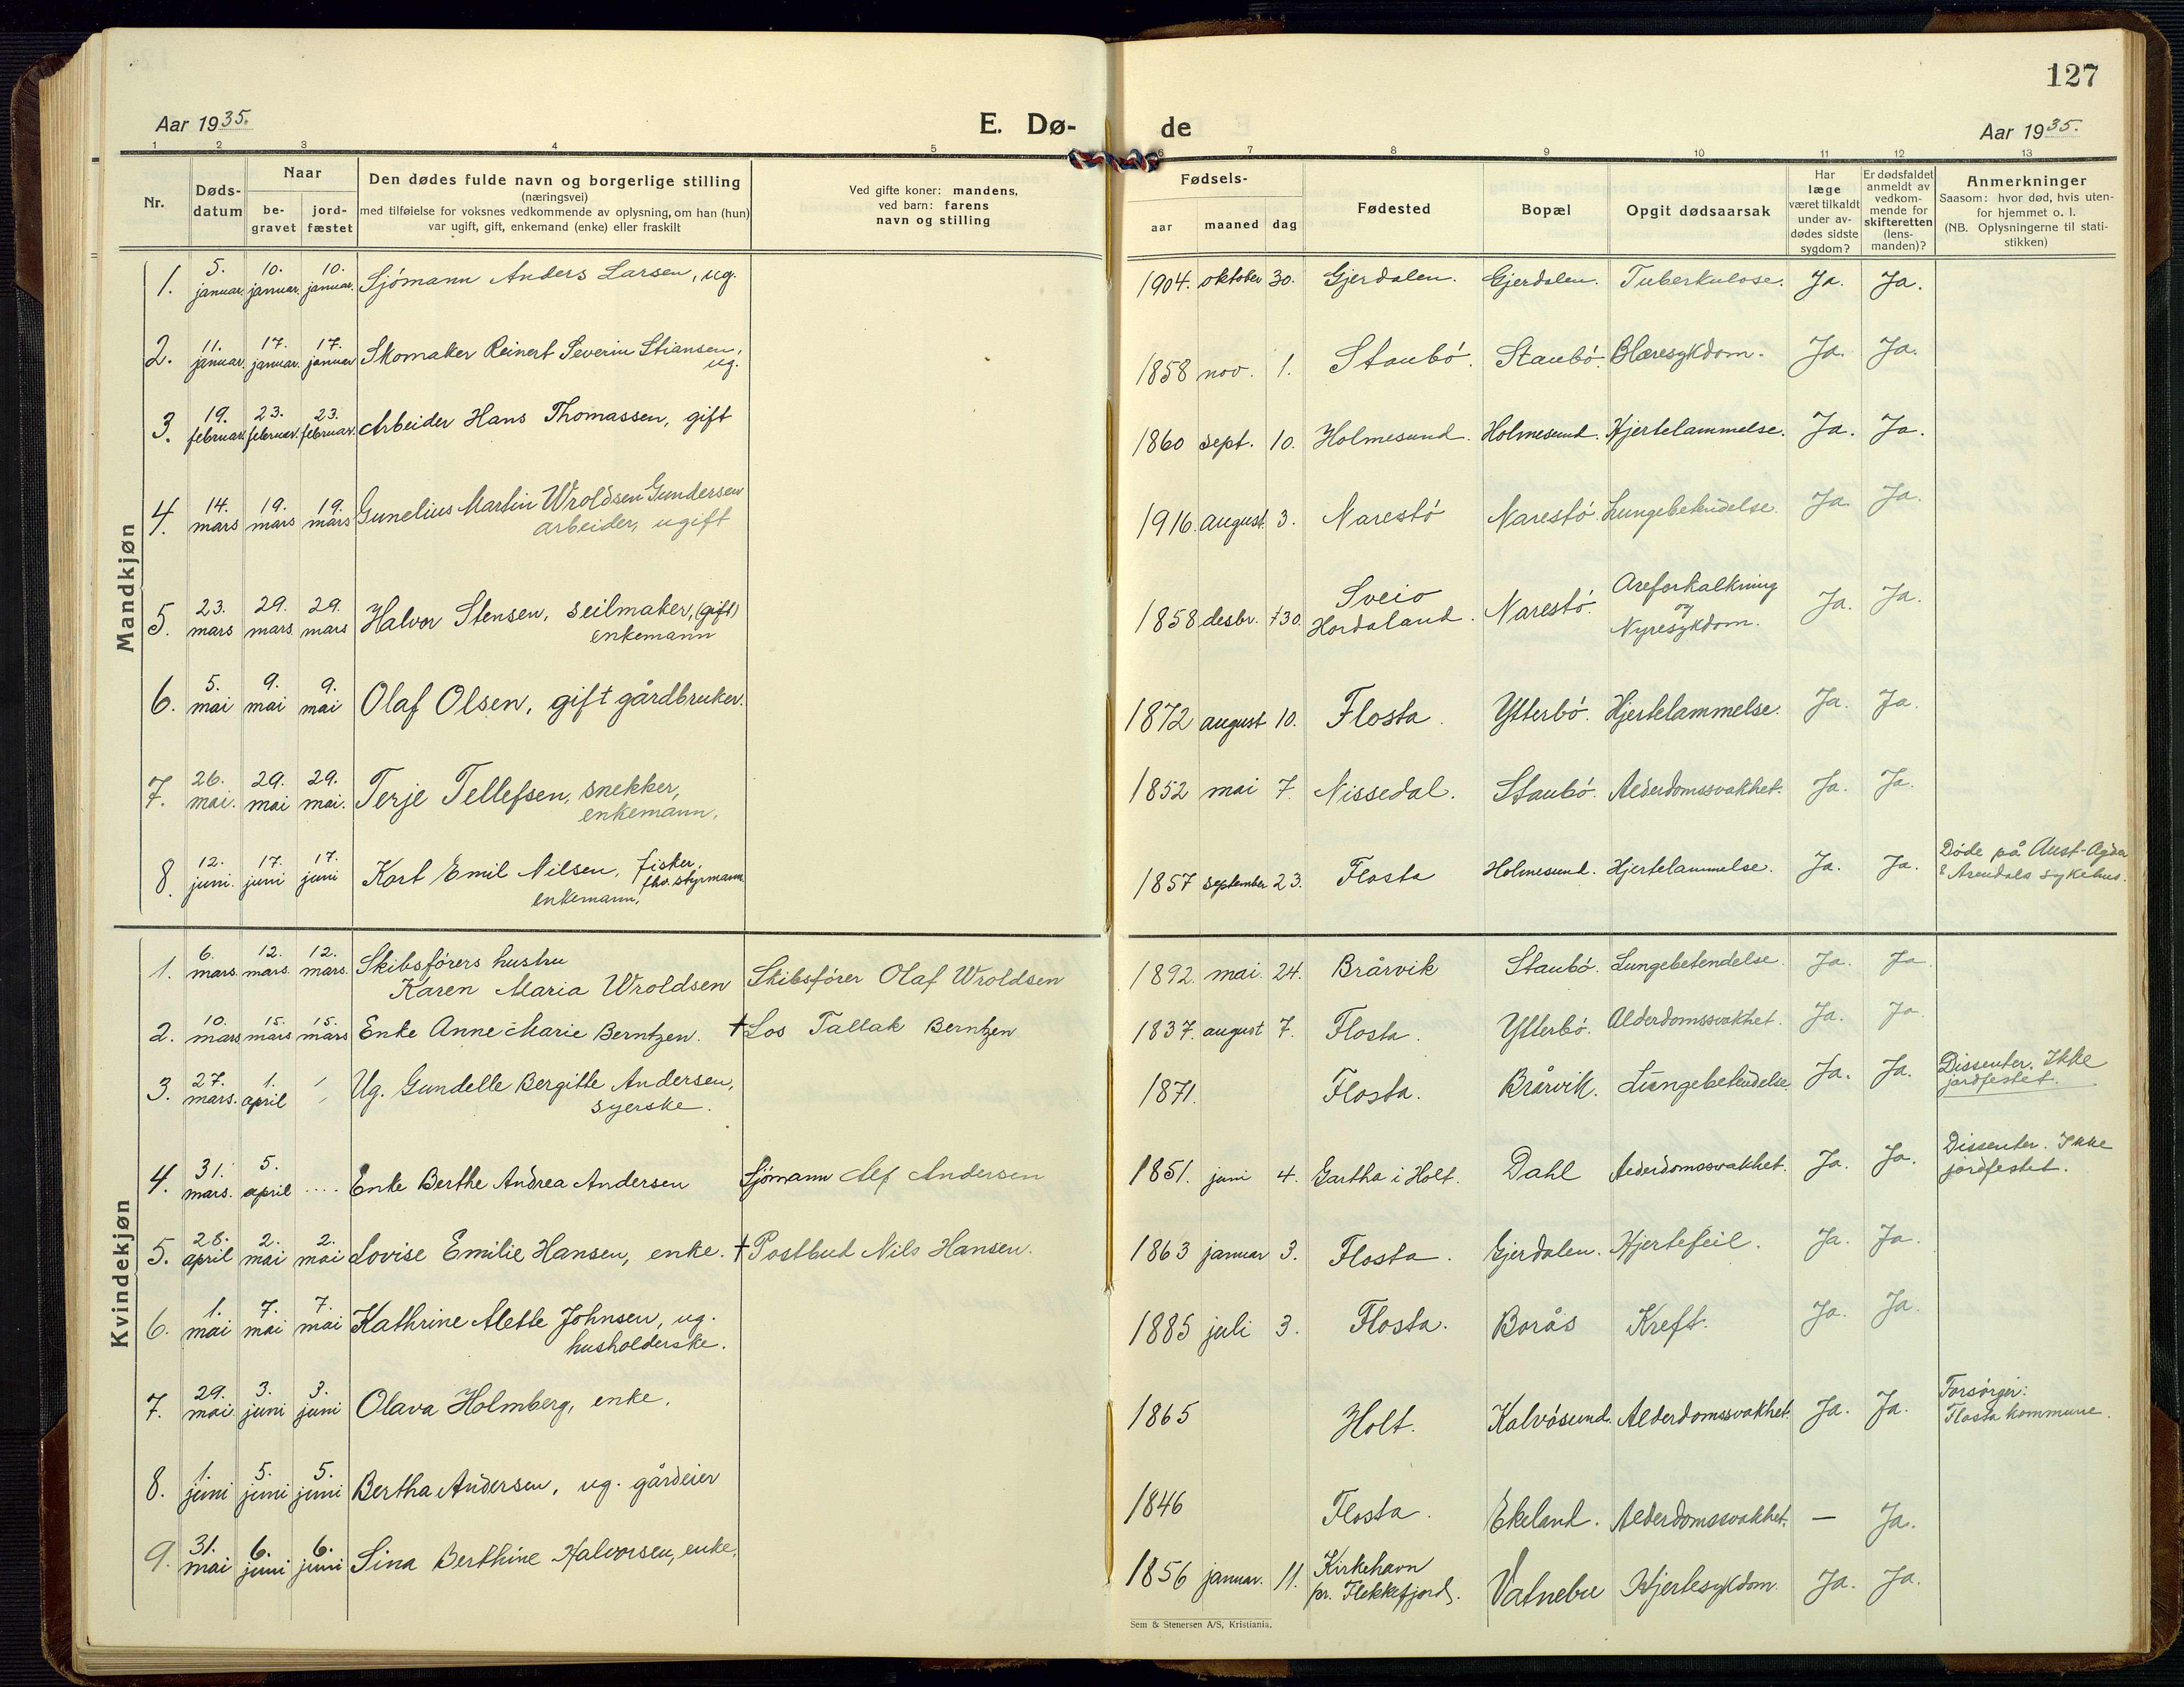 127
Aar 1935.
E. Dø-
de
Aar 1935.
1 2 3 4 5 6 7 8 9 10 11 12 13
Nr.
Døds-
datum
Naar
be-
gravet
jord-
fæstet
Den dødes fulde navn og borgerlige stilling
(næringsvei)
med tilføielse for voksnes vedkommende av oplysning, om han (hun)
var ugift, gift, enkemand (enke) eller fraskilt
Ved gifte koner: mandens,
ved barn: farens
navn og stilling
Fødsels-
aar
maaned
dag
Fødested
Bopæl
Opgit dødsaarsak
Har
læge
været tilkaldt
under av-
dødes sidste
sygdom?
Er dødsfaldet
anmeldt av
vedkom-
mende for
skifteretten
(lens-
manden)?
Anmerkninger
Saasom: hvor død, hvis uten-
for hjemmet o. l.
(NB. Oplysningerne til stati-
stikken)
Mandkjøn
1. 5. januar. 10. januar. 10. januar. Sjømann Anders Larsen, ug. 1904. oktober 30. Gjerdalen. Gjerdalen. Tuberkulose. Ja. Ja.
2. 11. januar. 17. januar. 17. januar Skomaker Reinert Severin Stiansen,
ug. 1858 nov. 1. Staubø. Staubø. Blæresykdom. Ja. Ja.
3. 19. februar. 23. februar. 23. februar. Arbeider Hans Thomassen, gift 1860 sept. 10. Holmesund. Holmesund. Hjertelammelse. Ja. Ja.
4. 14. mars 19. mars 19. mars Gunelius Martin Wroldsen Gundersen
arbeider, ugift 1916. august. 3. Narestø Narestø. Lungebetendelse. Ja. Ja.
5. 23. mars 29. mars. 29. mars Halvor Stensen, seilmaker, (gift)
enkemann 1858 desbr. 30. Sveio
Hordaland. Narestø. Areforkalkning
og
Nyresykdom. Ja. Ja.
6. 5. mai 9. mai 9. mai Olaf Olsen, gift gårdbruker. 1872 august 10. Flosta. Ytterbø. Hjertelammelse. Ja. Ja.
7. 26. mai. 29. mai 29. mai. Terje Tellefsen, snekker,
enkemann. 1852 mai 7. Nissedal. Staubø. Alderdomssvakhet. Ja. Ja.
8. 12. juni. 17. juni 17. juni Karl Emil Nilsen, fisker,
fhv. styrmann
enkemann. 1857 september 23. Flosta Holmesund. Hjertelammelse. Ja. Ja. Døde på Aust-Agder
& Arendals sykehus.
Kvindekjøn
1. 6. mars. 12. mars. 12. mars. Skibsførers hustru
Karen Maria Wroldsen Skibsfører Olaf Wroldsen 1892. mai. 24. Brårvik Staubø. Lungebetendelse. Ja. Ja
2. 10. mars 15. mars 15. mars Enke Anne Marie Berntzen. † Los Tallak Berntzen 1837. august 7. Flosta. Ytterbø. Alderdomssvakhet. Ja. Ja
3. 27. mars. 1. april Ug. Gundelle Bergitte Andersen,
syerske. 1871. Flosta. Brårvik. Lungebetendelse Ja. Ja. Dissenter. Ikke
jordfestet.
4. 31. mars. 5. april .... Enke Berthe Andrea Andersen Sjømann Alf Andersen 1851. juni 4. Gartha i Holt. Dahl Alderdomssvakhet. Ja. Ja. Dissenter. Ikke
jordfestet.
5. 28. april 2. mai 2. mai Lovise Emilie Hansen, enke. † Postbud Nils Hansen. 1863 januar 3. Flosta. Gjerdalen. Hjertefeil. Ja. Ja.
6. 1. mai 7. mai 7. mai Kathrine Alette Johnsen, ug.
husholderske. 1885 juli 3. Flosta. Borås Kreft. Ja. Ja.
7. 29. mai. 3. juni 3. juni Olava Holmberg, enke. 1865 Holt. Kalvøsund. Alderdomssvakhet. Ja. Ja. Forsørger:
Flosta kommune.
8. 1. juni 5. juni 5. juni Bertha Andersen, ug. gårdeier 1846 Flosta. Ekeland. Alderdomssvakhet. — Ja.
9. 31. mai 6. juni 6. juni Sina Berthine Halvorsen, enke. 1856 januar. 11. Kirkehavn
pr. Flekkefjord. Vatnebu Hjertesykdom. Ja. Ja.
Sem & Stenersen A/S, Kristiania.